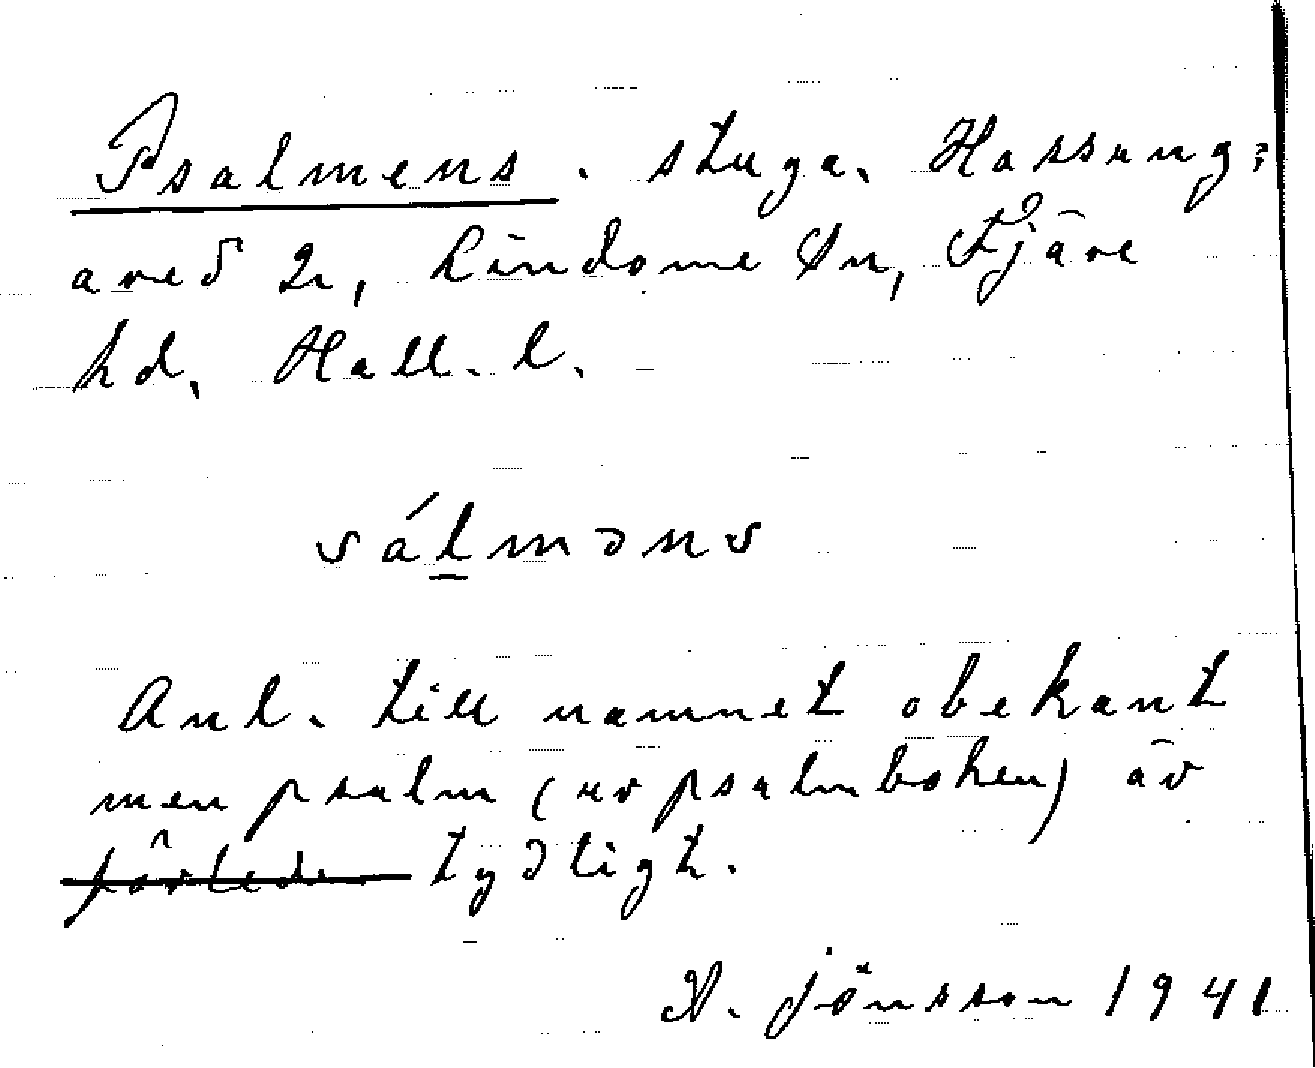 Psalmens. stuga. Hassung=
ared 2, Lindome Sn, Fjäre
hd. Hall. l.
sálməns
Anl. till namnet obekant
men psalm (ur psalmboken) är
förleden tydligt.
A. Jönsson 1941